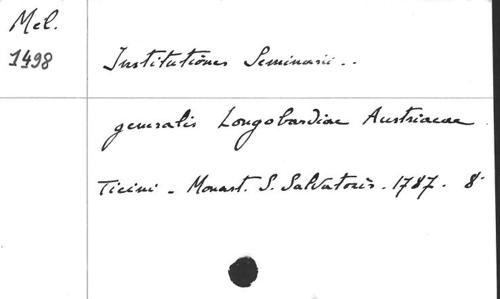 Mel.
1498
Institutiones Seminarii..
generalis Longobardiae Austriacae
Ticini - Monast. S. Salvatoris. 1787. 8°